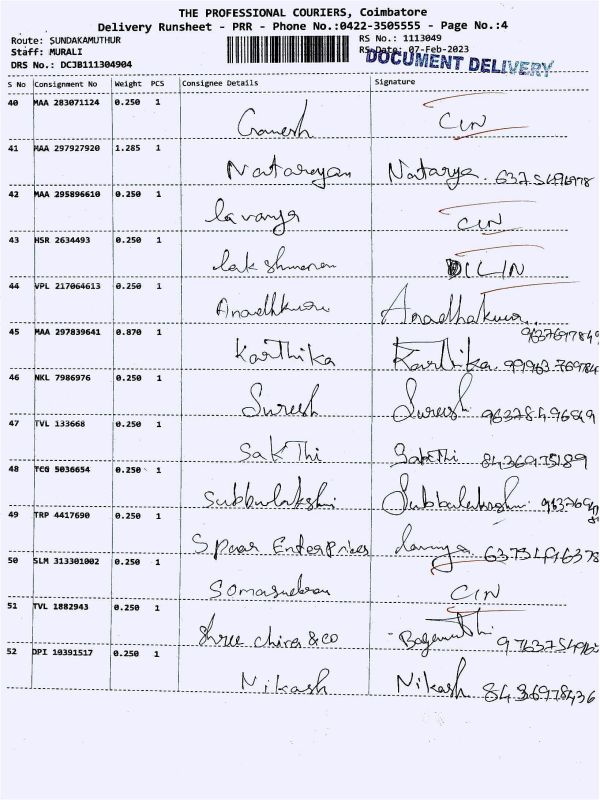 THE PROFESSIONAL COURIERS, Coimbatore
Delivery Runsheet - PRR - Phone No.:0422-3505555 - Page No.:4
Route: SUNDAKAMUTHUR RS No.: 1113049
Staff: MURALI RS Date: 07-Feb-2023
DRS No.: DCJB111304904 DOCUMENT DELIVERY
S No Consignment No Weight PCS Consignee Details Signature
40 MAA 283071124 0.250 1
Ganesh CIN
41 MAA 297927920 1.285 1
Natarayan Natarya.
42 MAA 295896610 0.250 1
lavanya CIN
43 HSR 2634493 0.250 1
lakshmanan
44 VPL 217064613 0.250 1
45 MAA 297839641 0.870 1
Karthika Karthika. 99963769784
46 NKL 7986976 0.250 1
Suresh Suresh
47 TVL 133668 0.250 1
Sakthi Sakthi 8436975189
48 TCG 5036654 0.250 1
Subbulakshi
49 TRP 4417690 0.250 1
Enterprises
50 SLM 313301002 0.250 1
CIN
51 TVL 1882943 0.250 1
Shree & co
52 DPI 10391517 0.250 1
Nikash Nikash 8436978436